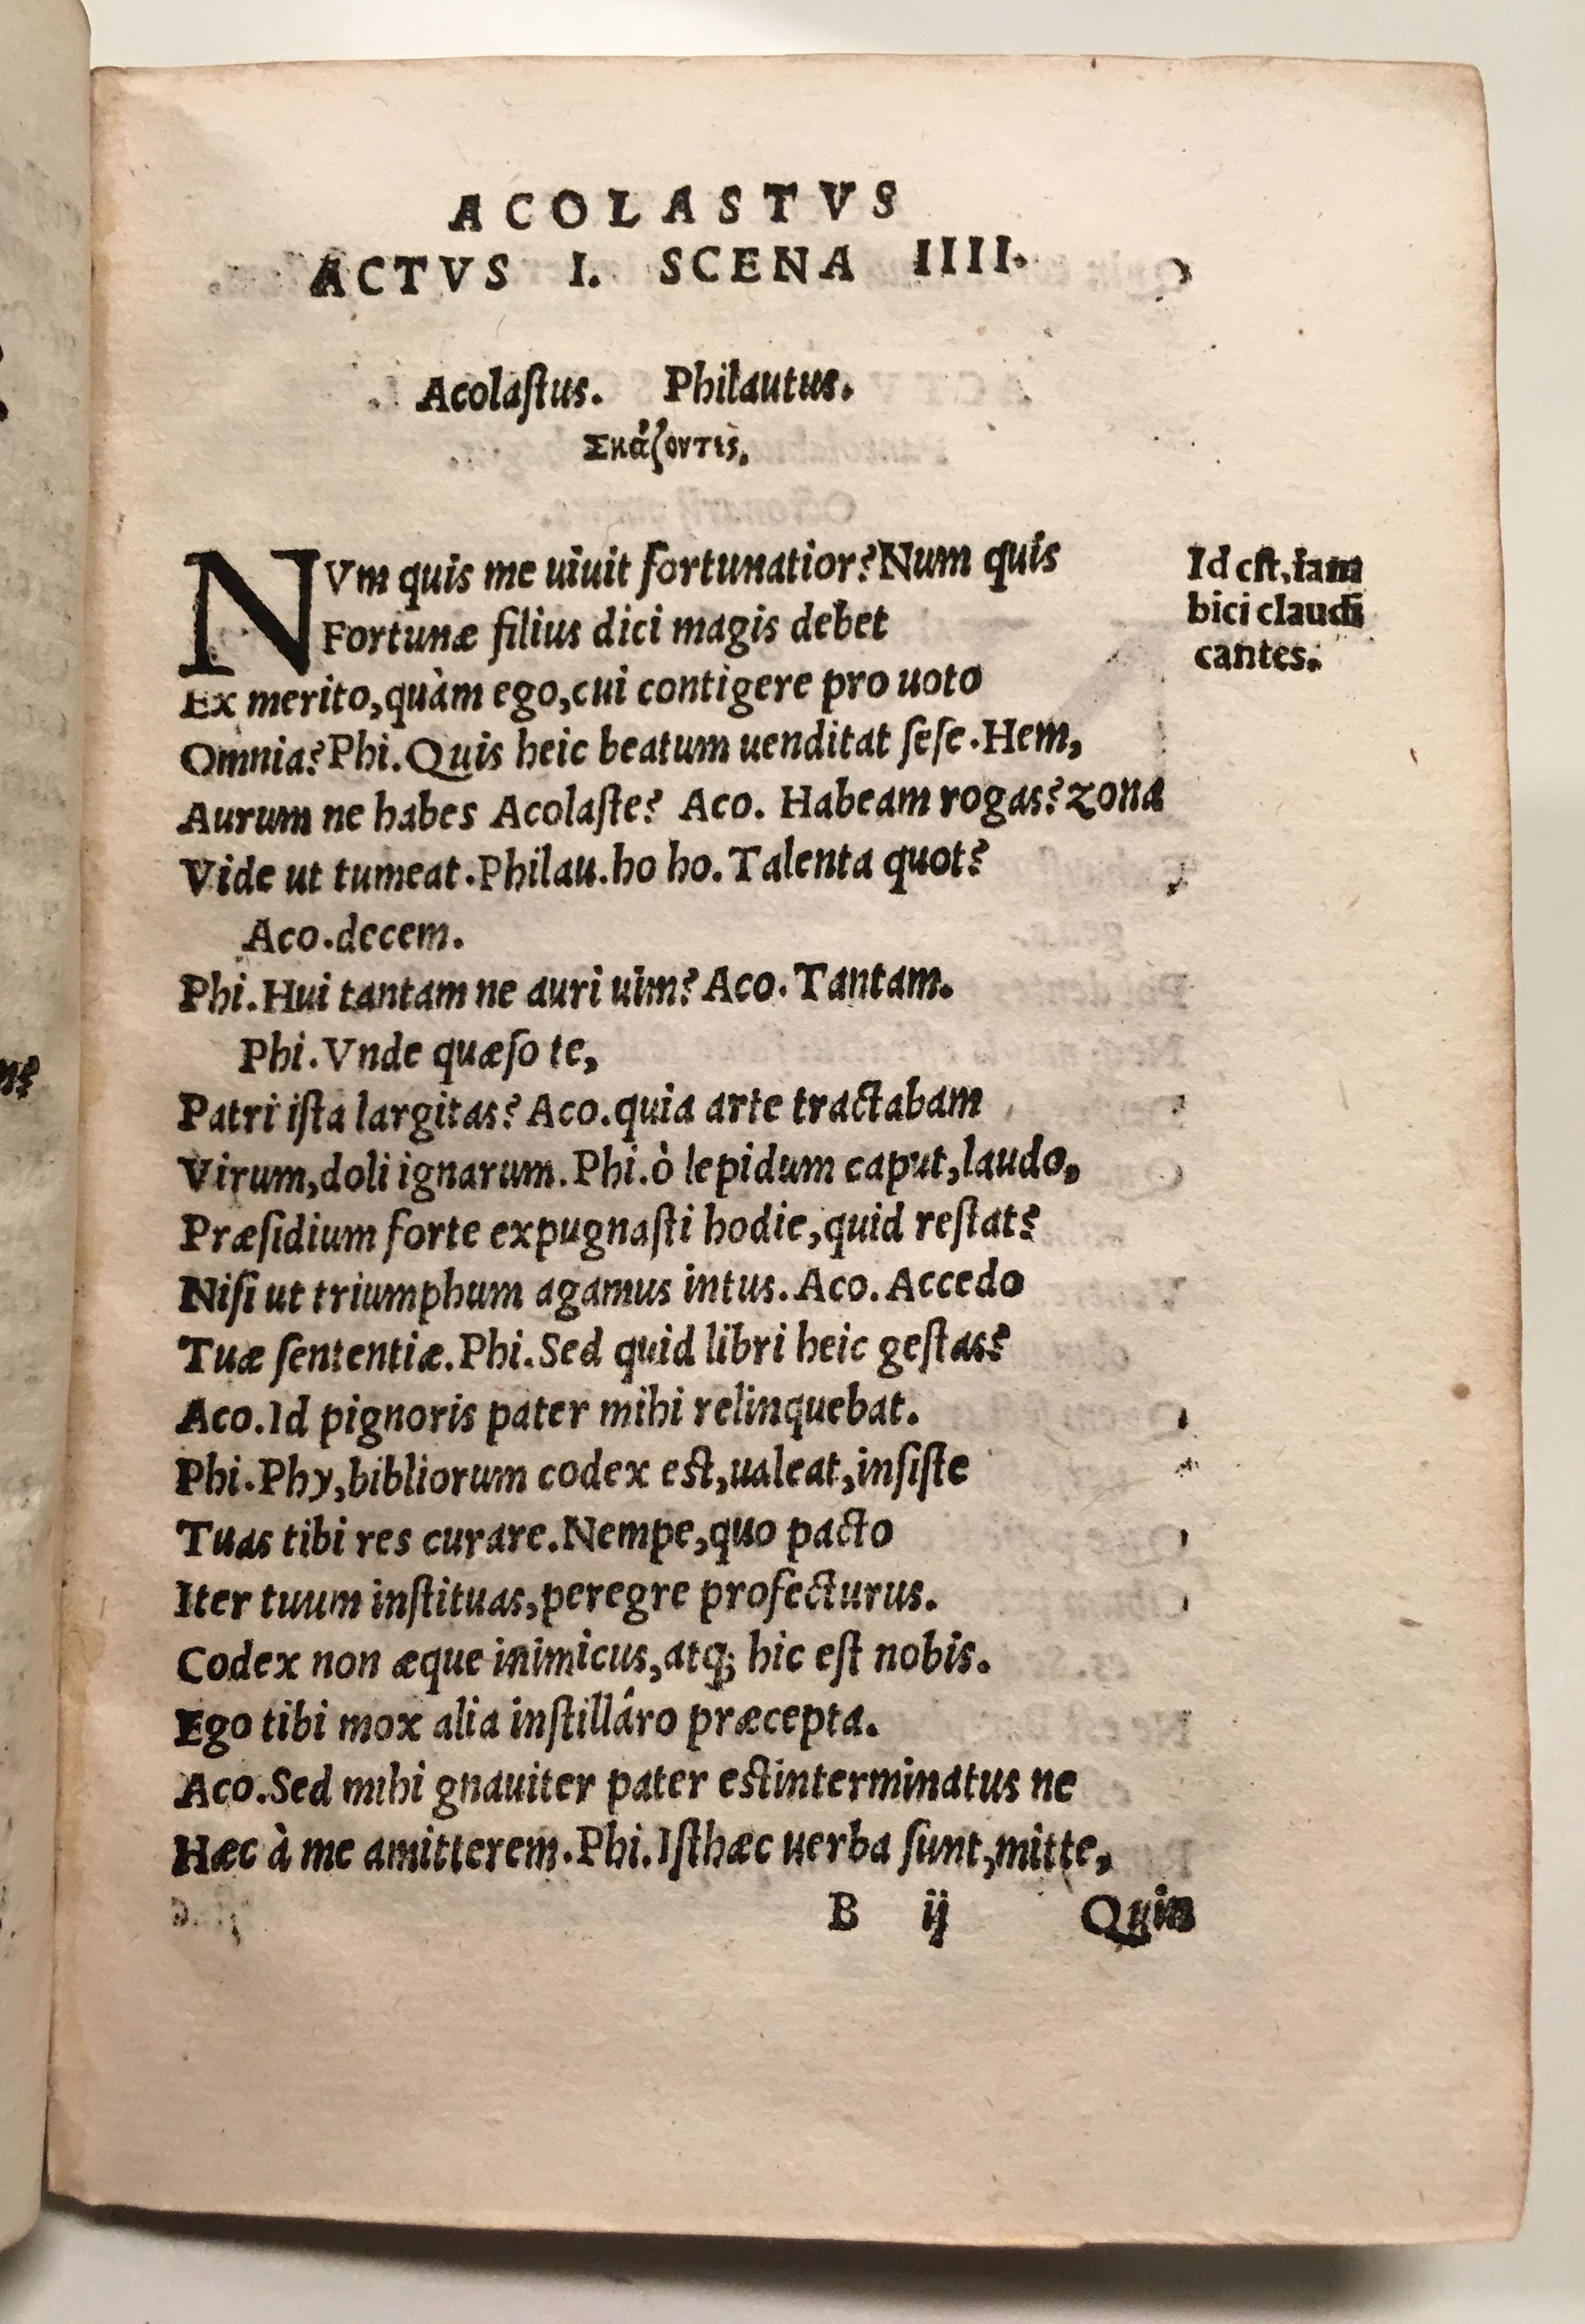 ACOLASTVS
ACTVS I. SCENA IIII.
Acolaſtus. Philautus.
Σκάζοντις.
NVm quis me uiuit fortunatior? Num quis
Fortunæ filius dici magis debet
Ex merito, quàm ego, cui contigere pro uoto
Omnia? Phi. Quis heic beatum uenditat ſeſe. Hem,
Aurum ne habes Acolaſte? Aco. Habeam rogas? zona
Vide ut tumeat. Philau. ho ho. Talenta quot?
Aco. decem.
Phi. Hui tantam ne auri uim? Aco. Tantam.
Phi. Vnde quæſo te,
Patri iſta largitas? Aco. quia arte tractabam
Virum, doli ignarum. Phi. ò lepidum caput, laudo,
Præſidium forte expugnaſti hodie, quid reſtat?
Niſi ut triumphum agamus intus. Aco. Accedo
Tuæ ſententiæ. Phi. Sed quid libri heic geſtas?
Aco. Id pignoris pater mihi relinquebat.
Phi. Phy, bibliorum codex eſt, ualeat, inſiſte
Tuas tibi res curare. Nempe, quo pacto
Iter tuum inſtituas, peregre profecturus.
Codex non æque inimicus, atq; hic eſt nobis.
Ego tibi mox alia inſtilláro præcepta.
Aco. Sed mihi gnauiter pater eſtinterminatus ne
Hæc à me amitterem. Phi. Iſthæc uerba ſunt, mitte,
B ij Quin
Id eſt, iam
bici claudi
cantes.